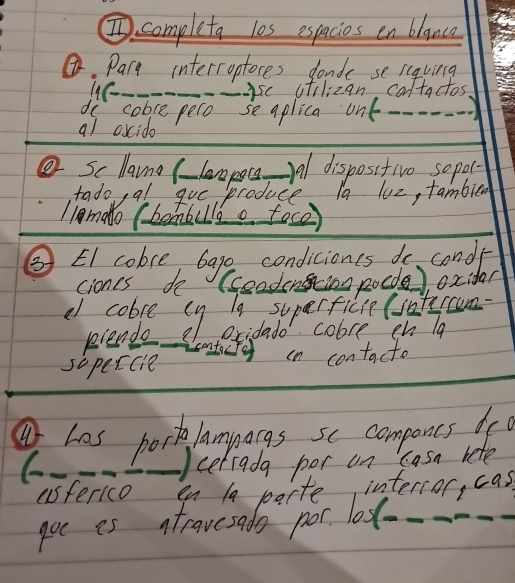 II. completa los espacios en blanco
1-. Para interruptores donde se requiera
la (----------) se utilizan contactos
de cobre pero se aplica un (-------)
al oxido
2- Se llama (lampara) al dispositivo sopor-
tado, al que produce la luz, tambien
llamado (bombilla o foco)
3- El cobre bajo condiciones de condi-
ciones de (condensacion puede) oxidar
el cobre en la superficie (interrum-
piendo el oxidado cobre en la
contacto)
superficie en contacto
4- Los portalamparas se compones de
(---------) cerrada por un casa
esferico en la parte interior, cas
que es atravesado por. los (---------